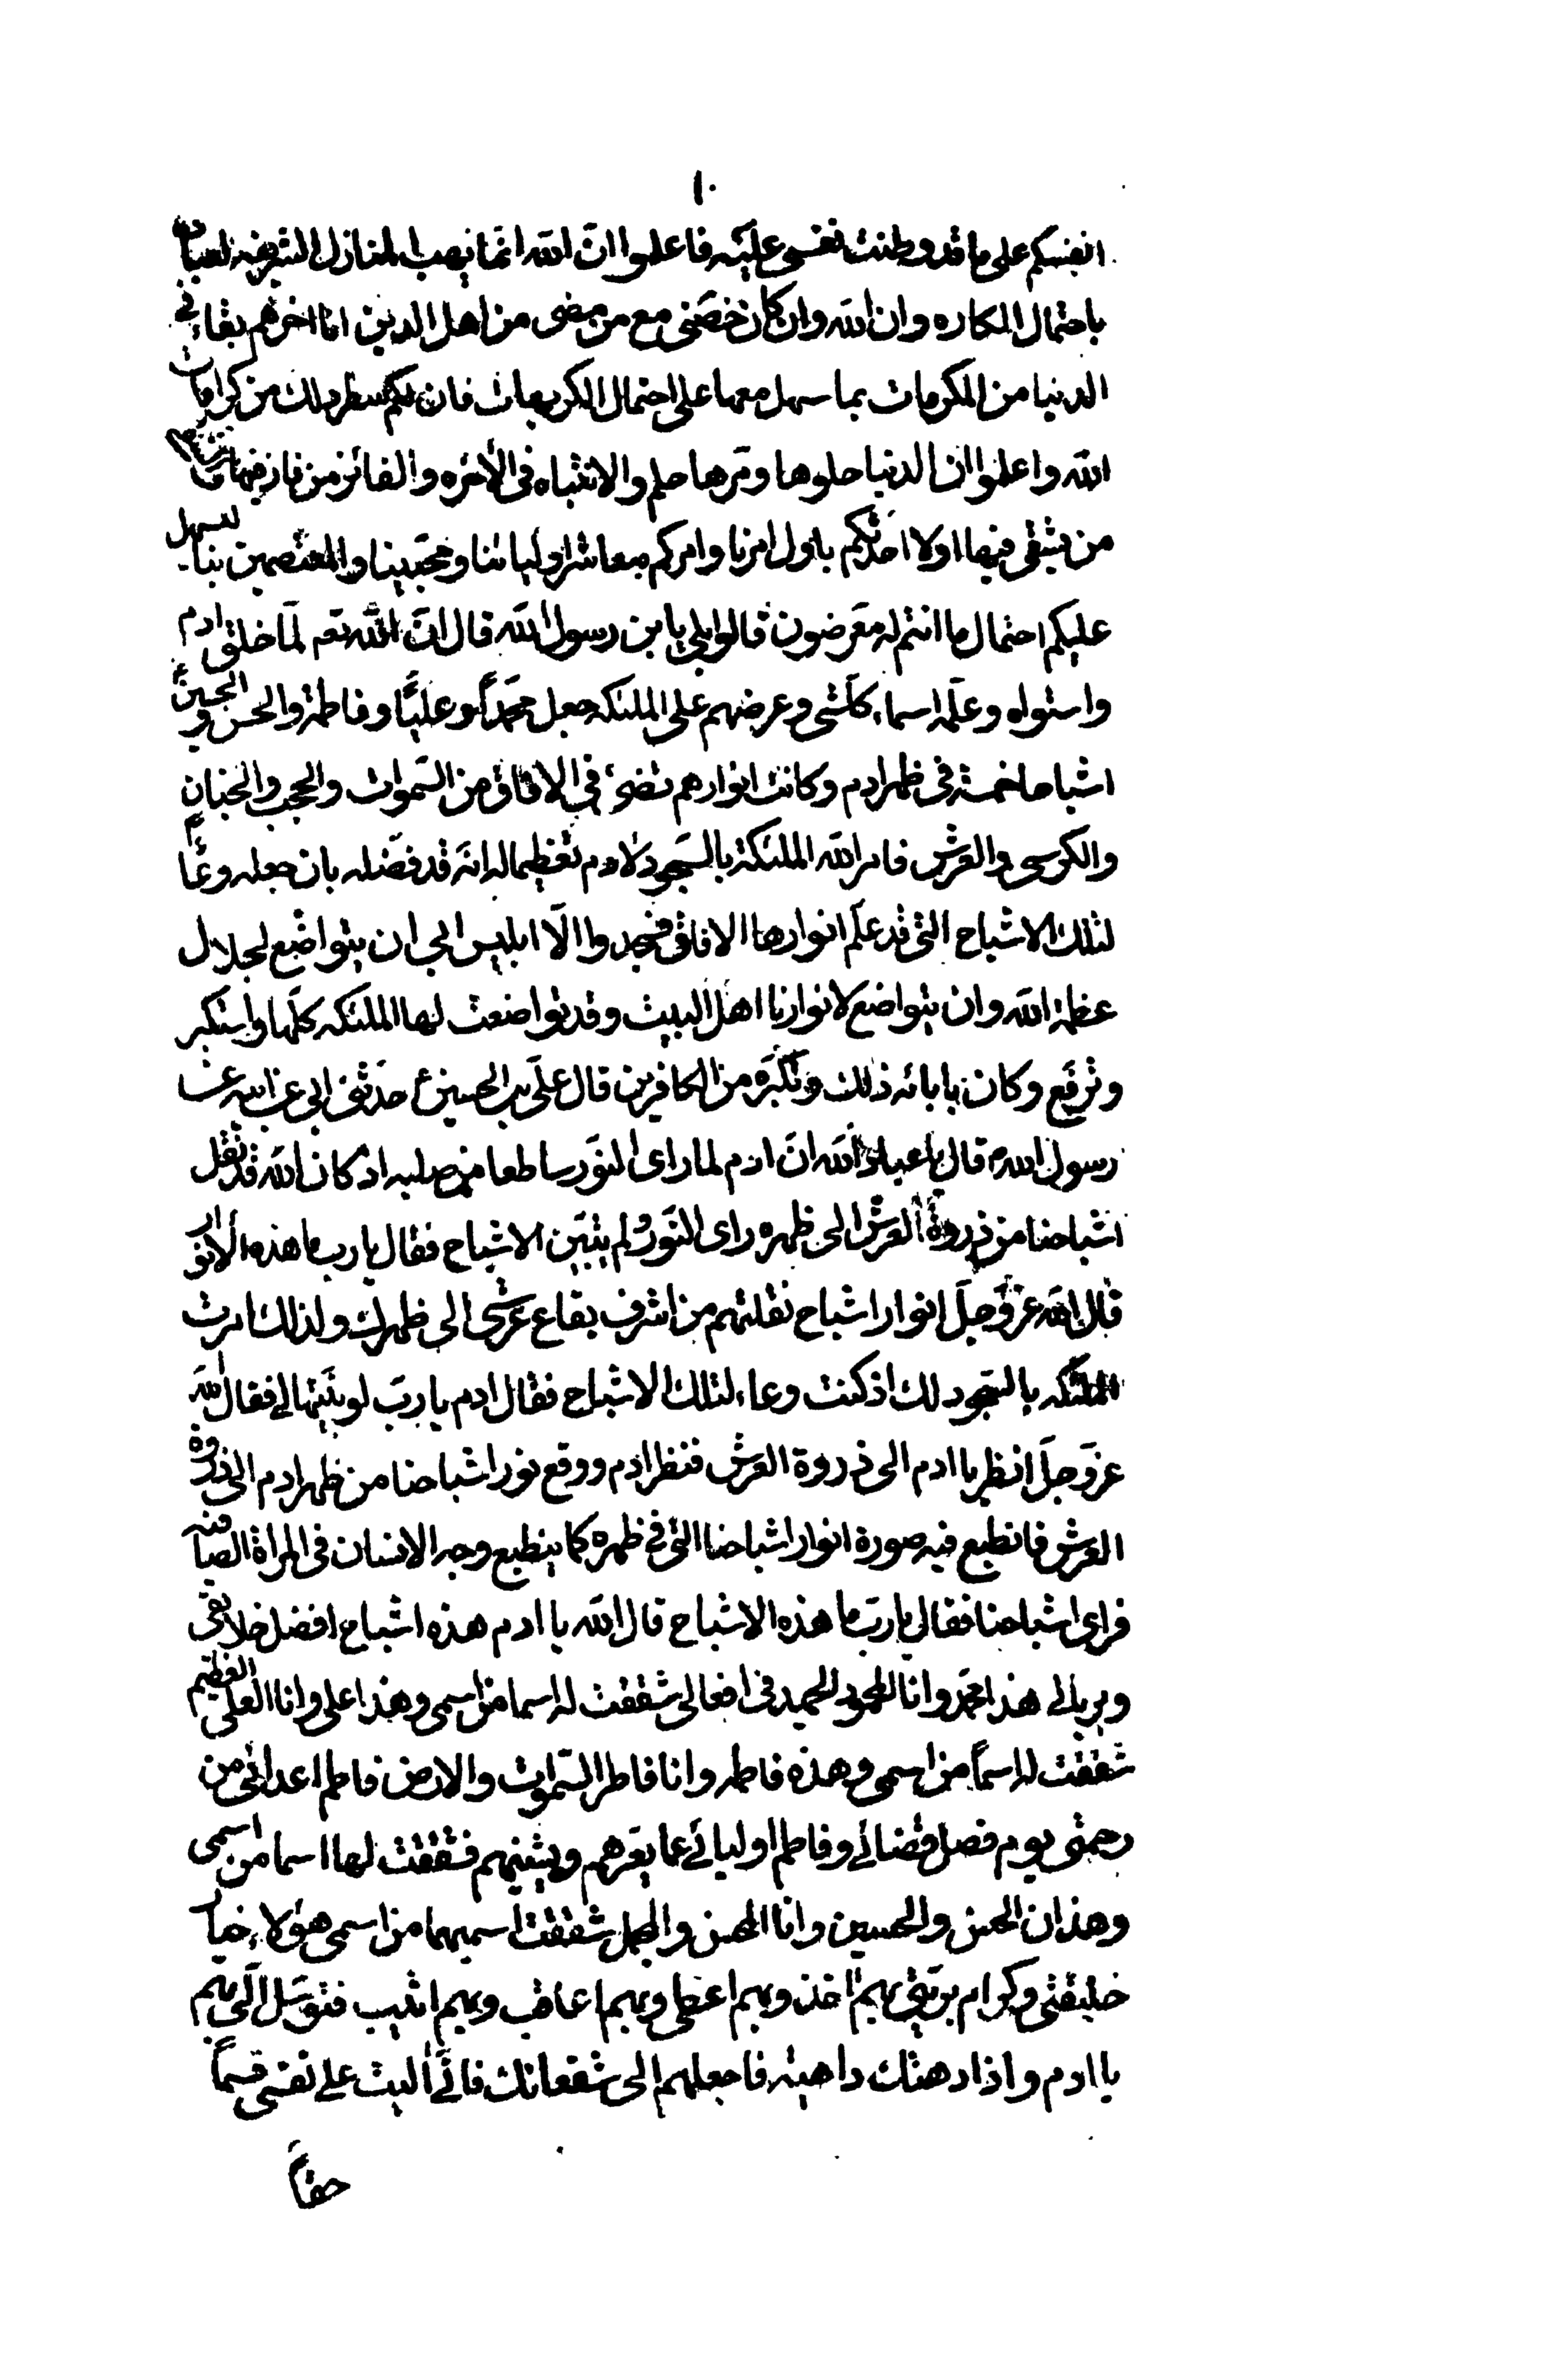 ١٠
انفسكم على ما قد وطنت نفسى عليه فاعلموا انّ الله انّما يهب المنازل الشريفه لعباده
باحتمال المكاره وان الله وان كان خصّنى مع من مضى من اهل الدين انا اخرهم بقاء فى
الدنيا من المكرمات بما سهل معها على احتمال الكريهات فان لكم شطر ذلك من كرامات
الله واعلموا ان الدنيا حلوها ومرّها حلم والانتباه فى الأخره والفائز من فاز فيها والشقى
من يشقى فيها اولا احدّثكم باول امرنا وامركم معاشر اوليائنا ومحبّينا والمعتصمين بنا ليسهل
عليكم احتمال ما انتم له معرضون قالوا بلى يا بن رسول الله قال انّ الله تعم لمّا خلق ادم
واستواه وعلّمه اسماء كلشى وعرضهم على الملئكه جعل محمّداً وعليّاً وفاطمة والحسن والحسينً
اشباحا خمسة فى ظهر ادم وكانت انوارهم تضئ فى الافاق من السّموات والحجب والجنان
والكرسى والعرش فامر الله الملئكة بالسّجود لادم تعظيما له انّه قد فضّله بان جعله وعاًء
لتلك الاشباح التى قد علّم انوارها الافاق فسجدوا الّا ابليس ابى ان يتواضع لجلال
عظمة الله وان يتواضع لانوارنا اهل البيت وقد تواضعت لها الملئكه كلّها واستكبر
وترفّع وكان بابائه ذلك وتكبّره من الكافرين قال علّى بن الحسين ع حدّثنى ابى عن ابيه عن
رسول الله ص قال يا عباد الله انّ ادم لما راى النّور ساطعا من صلبه اذ كان الله قد نقل
اشباحنا من ذروة العرش الى ظهره راى النّور ولم يتبيّن الاشباح فقال يا رب ما هذه الانوار
قال الله عزّ وجلّ انوار اشباح نقلتهم من اشرف بقاع عرشى الى ظهرك ولذلك امرت
الملئكه بالسّجود لك اذ كنت وعاء لتلك الاشباح فقال ادم يا ربّ لو بيّنتها لى فقال الله
عزّ وجلّ انظر يا ادم الى ذروة العرش فنظر ادم ووقع نور اشباحنا من ظهر ادم الى ذروة
العرش فانطبع فيه صورة انوار اشباحنا التى فى ظهره كما ينطبع وجه الانسان فى المراة الصافيه
فراى اشباحنا فقال يا ربّ ما هذه الاشباح قال الله يا ادم هذه اشباح افضل خلائقى
وبرياتى هذا محمّد وانا المحمود الحميد فى افعالى شققت له اسما من اسمى وهذا على وانا العلى العظيم
شققت له اسماً من اسمى وهذه فاطمه وانا فاطر السّموات والارض فاطم اعدائى من
رحمتى يوم فصل قضائى وفاطم اوليائى عما يعرّهم ويشينهم فشققت لها اسما من اسمى
وهذان الحسن والحسين وانا المحسن والمجمل شققت اسميهما من اسمى هؤلاء خيار
خليقتى وكرام بريّتى بهم اخذ وبهم اعطى وبهم اعاقب وبهم اثيب فتوسّل الّى بهم
يا ادم واذا دهتك داهيه فاجعلهم الى شفعائك فانّى اليت على نفسى قسماً
حقاً